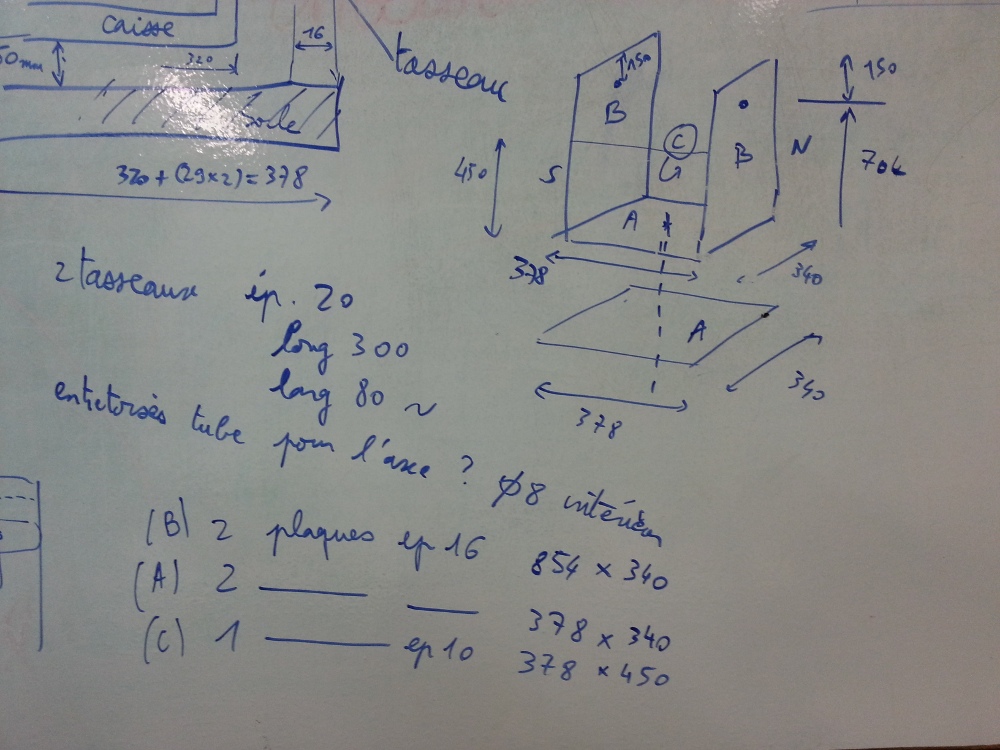 caisse
16
50mm
320
tasseau
Socle
320 + (29x2) = 378
150
B
C
B
N
150
704
450
S
A
378
340
A
378
340
2 tasseaux ép. 20
long 300
larg 80 ~
entretoises tube pour l'axe ? ø8 intérieur
(B) 2 plaques ep 16 854 x 340
(A) 2 —— —— 378 x 340
(C) 1 —— ep 10 378 x 450